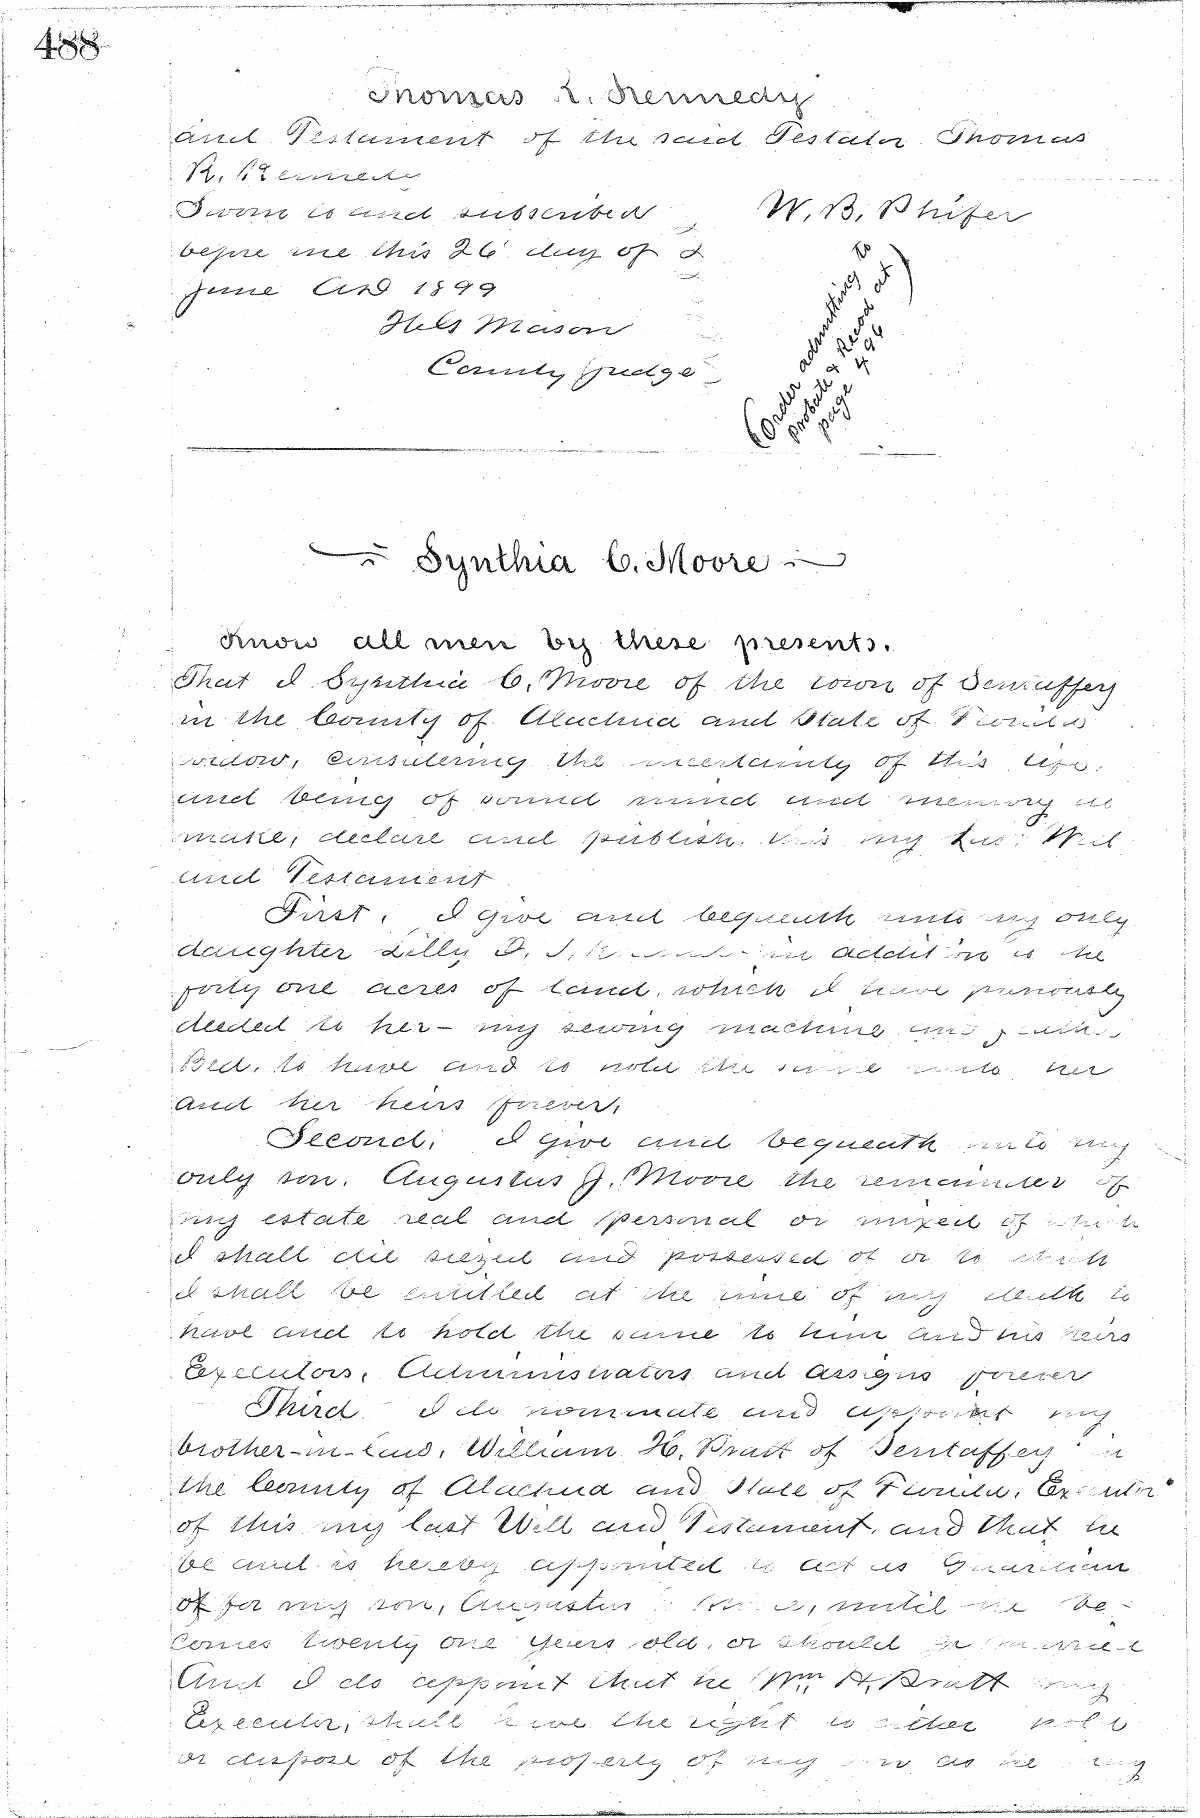 488
Thomas R. Kennedy
and Testament of the said Testator Thomas
R. Kennedy
Sworn to and subscribed
before me this 26 day of
June AD 1899
W. B. Phifer
Mason
County Judge
(Order admitting to
probate & Record at
page 496)
Synthia C. Moore
Know all men by these presents.
That I Synthia C. Moore of the town of
in the County of Alachua and State of Florida
widow, considering the uncertainty of this life,
and being of sound mind and memory do
make, declare and publish this my last Will
and Testament
First. I give and bequeath unto my only
daughter Lilly in addition to the
forty one acres of land, which I have previously
deeded to her - my sewing machine and
Bed. to have and to hold the same unto her
and her heirs forever,
Second, I give and bequeath unto my
only son. Augustus J. Moore the remainder of
my estate real and personal or mixed of which
I shall die siezed and possessed of or to which
I shall be entitled at the time of my death to
have and to hold the same to him and his heirs
Executors, Administrators and assigns forever
Third I do nominate and appoint my
brother-in-law, William H. Pratt of Tentaffey in
the County of Alachua and State of Florida, Executor
of this my last Will and Testament, and that he
be and is hereby appointed to act as Guardian
of for my son, Augustus until he be-
comes twenty one years old, or should
And I do appoint that he Wm H. Pratt my
Executor, shall have the right to either
or dispose of the property of my as he may